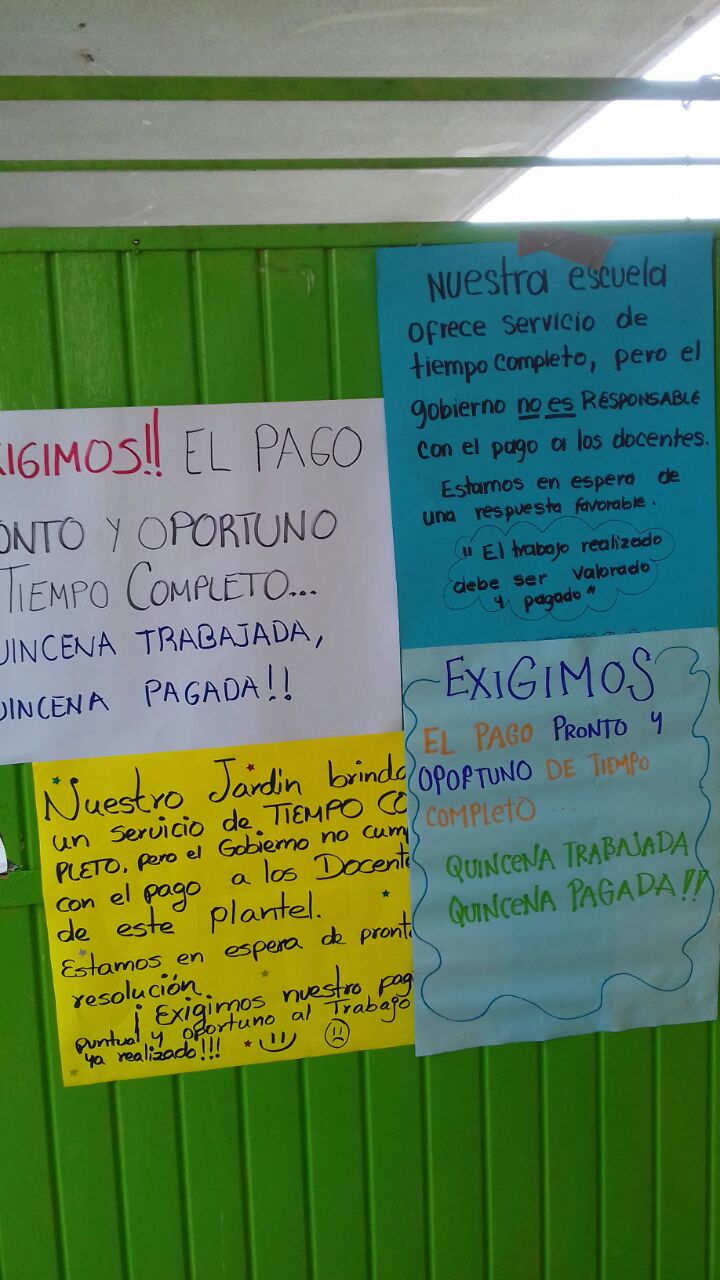 Nuestra escuela
ofrece servicio de
tiempo completo, pero el
gobierno no es RESPONSABLE
con el pago a los docentes.
Estamos en espera de
una respuesta favorable.
"El trabajo realizado
debe ser valorado
y pagado"
XIGIMOS!! EL PAGO
ONTO Y OPORTUNO
TIEMPO COMPLETO...
UINCENA TRABAJADA,
UINCENA PAGADA!!
EXIGIMOS
EL PAGO PRONTO Y
OPORTUNO DE TIEMPO
COMPLETO...
QUINCENA TRABAJADA
QUINCENA PAGADA!!
Nuestro Jardin brinda
un servicio de TIEMPO CO
PLETO. pero el Gobierno no cum
con el pago a los Docente
de este plantel.
Estamos en espera de pront
resolución.
¡Exigimos nuestro pag
puntual y oportuno al Trabajo
ya realizado!!!